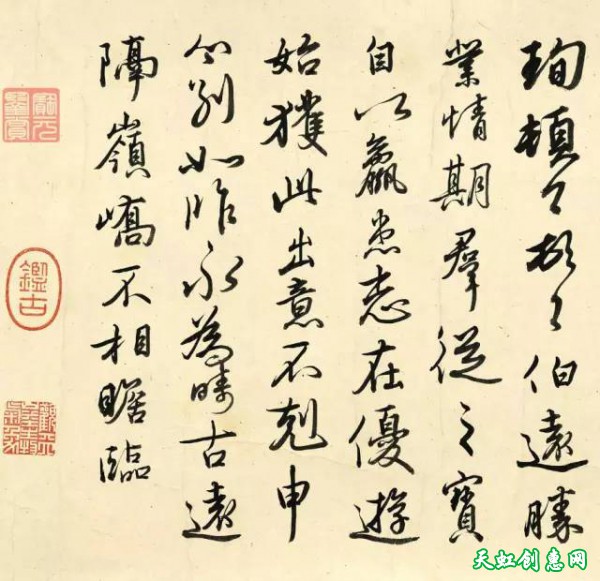 珣頓首頓首伯遠勝
業情期羣從之寶
自以羸患志在優遊
始獲此出意不剋申
分別如昨永為疇古遠
隔嶺嶠不相瞻臨
鑑古
天虹创意网